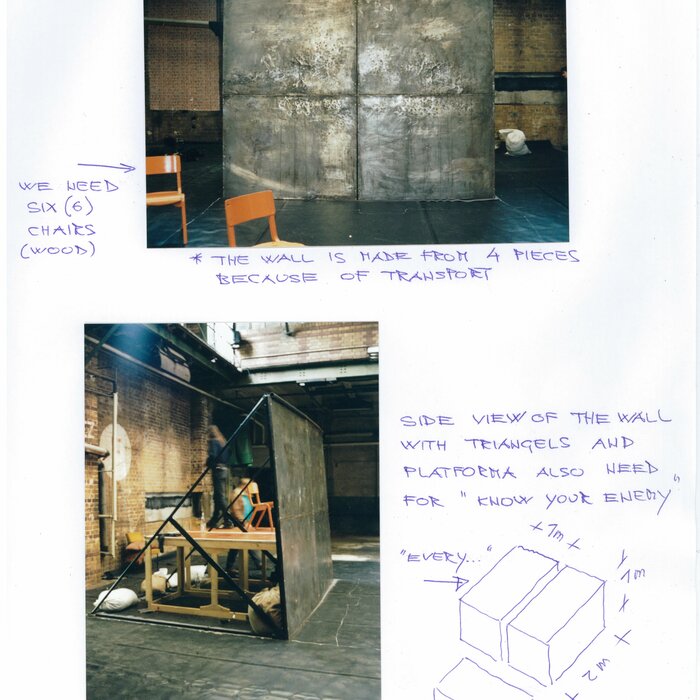 WE NEED
SIX (6)
CHAIRS
(WOOD)
* THE WALL IS MADE FROM 4 PIECES
BECAUSE OF TRANSPORT
SIDE VIEW OF THE WALL
WITH TRIANGELS AND
PLATFORMA ALSO NEED
FOR "KNOW YOUR ENEMY"
"EVERY..."
1m
1m
2m